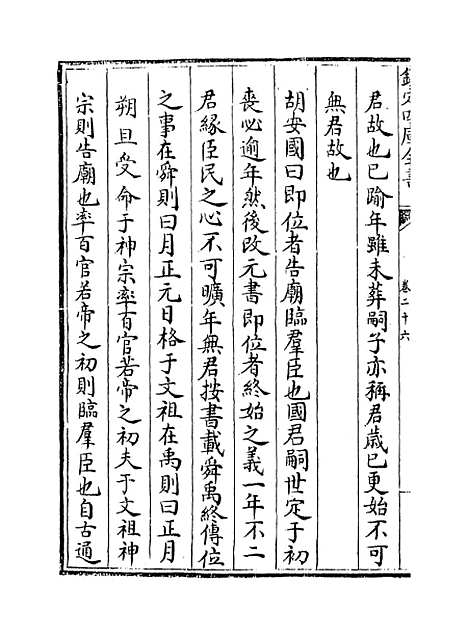 欽定四庫全書
卷二十六
君故也已踰年雖未葬嗣子亦稱君歲已更始不可
無君故也
胡安國曰即位者告廟臨羣臣也國君嗣世定于初
喪必逾年然後改元書即位者終始之義一年不二
君緣臣民之心不可曠年無君按書載舜禹終傳位
之事在舜則曰月正元日格于文祖在禹則曰正月
朔旦受命于神宗率百官若帝之初夫于文祖神
宗則告廟也率百官若帝之初則臨羣臣也自古通